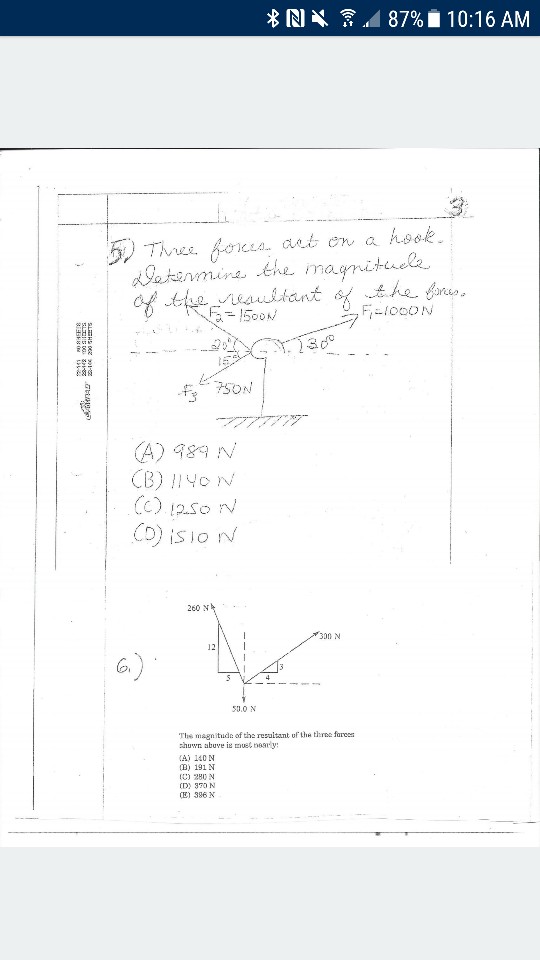 87% 10:16 AM
3
5) Three forces act on a hook.
Determine the magnitude
of the resultant of the forces.
F2=1500N
F1=1000N
20°
30°
15°
F3 750N
(A) 989 N
(B) 1140 N
(C) 1250 N
(D) 1510 N
260 N
300 N
12
6.)
3
5
4
50.0 N
The magnitude of the resultant of the three forces
shown above is most nearly:
(A) 140 N
(B) 191 N
(C) 280 N
(D) 370 N
(E) 396 N